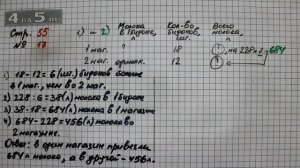 4 на 5 .RU
Стр. 55
№ 17
1) и 2)
Молока в 1 бидоне, л
Кол-во бидонов, шт.
Всего молока, л
1 маг. ? 18 ?, на 228 л б. 684
2 маг. одинак. 12 ?
1) 18-12=6(шт.) бидонов больше
в 1 маг., чем во 2 маг.
2) 228:6=38(л) молока в 1 бидоне
3) 38·18=684(л) молока в 1 магазине
4) 684-228=456(л) молока во
2 магазине.
Ответ: в один магазин привезли
684 л молока, а в другой - 456 л.